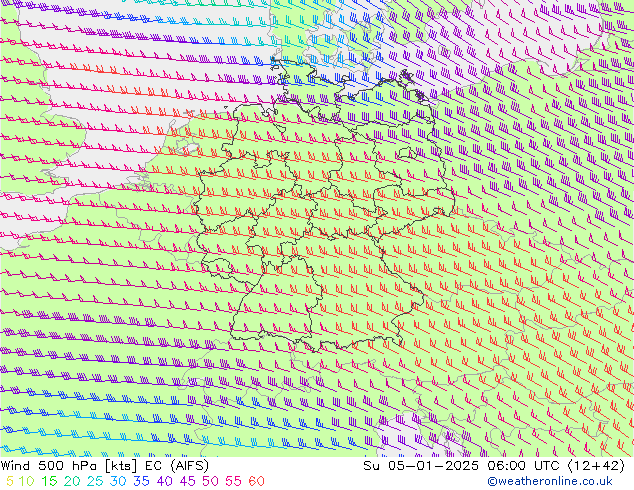 Wind 500 hPa [kts] EC (AIFS) Su 05-01-2025 06:00 UTC (12+42)
5 10 15 20 25 30 35 40 45 50 55 60 ©weatheronline.co.uk